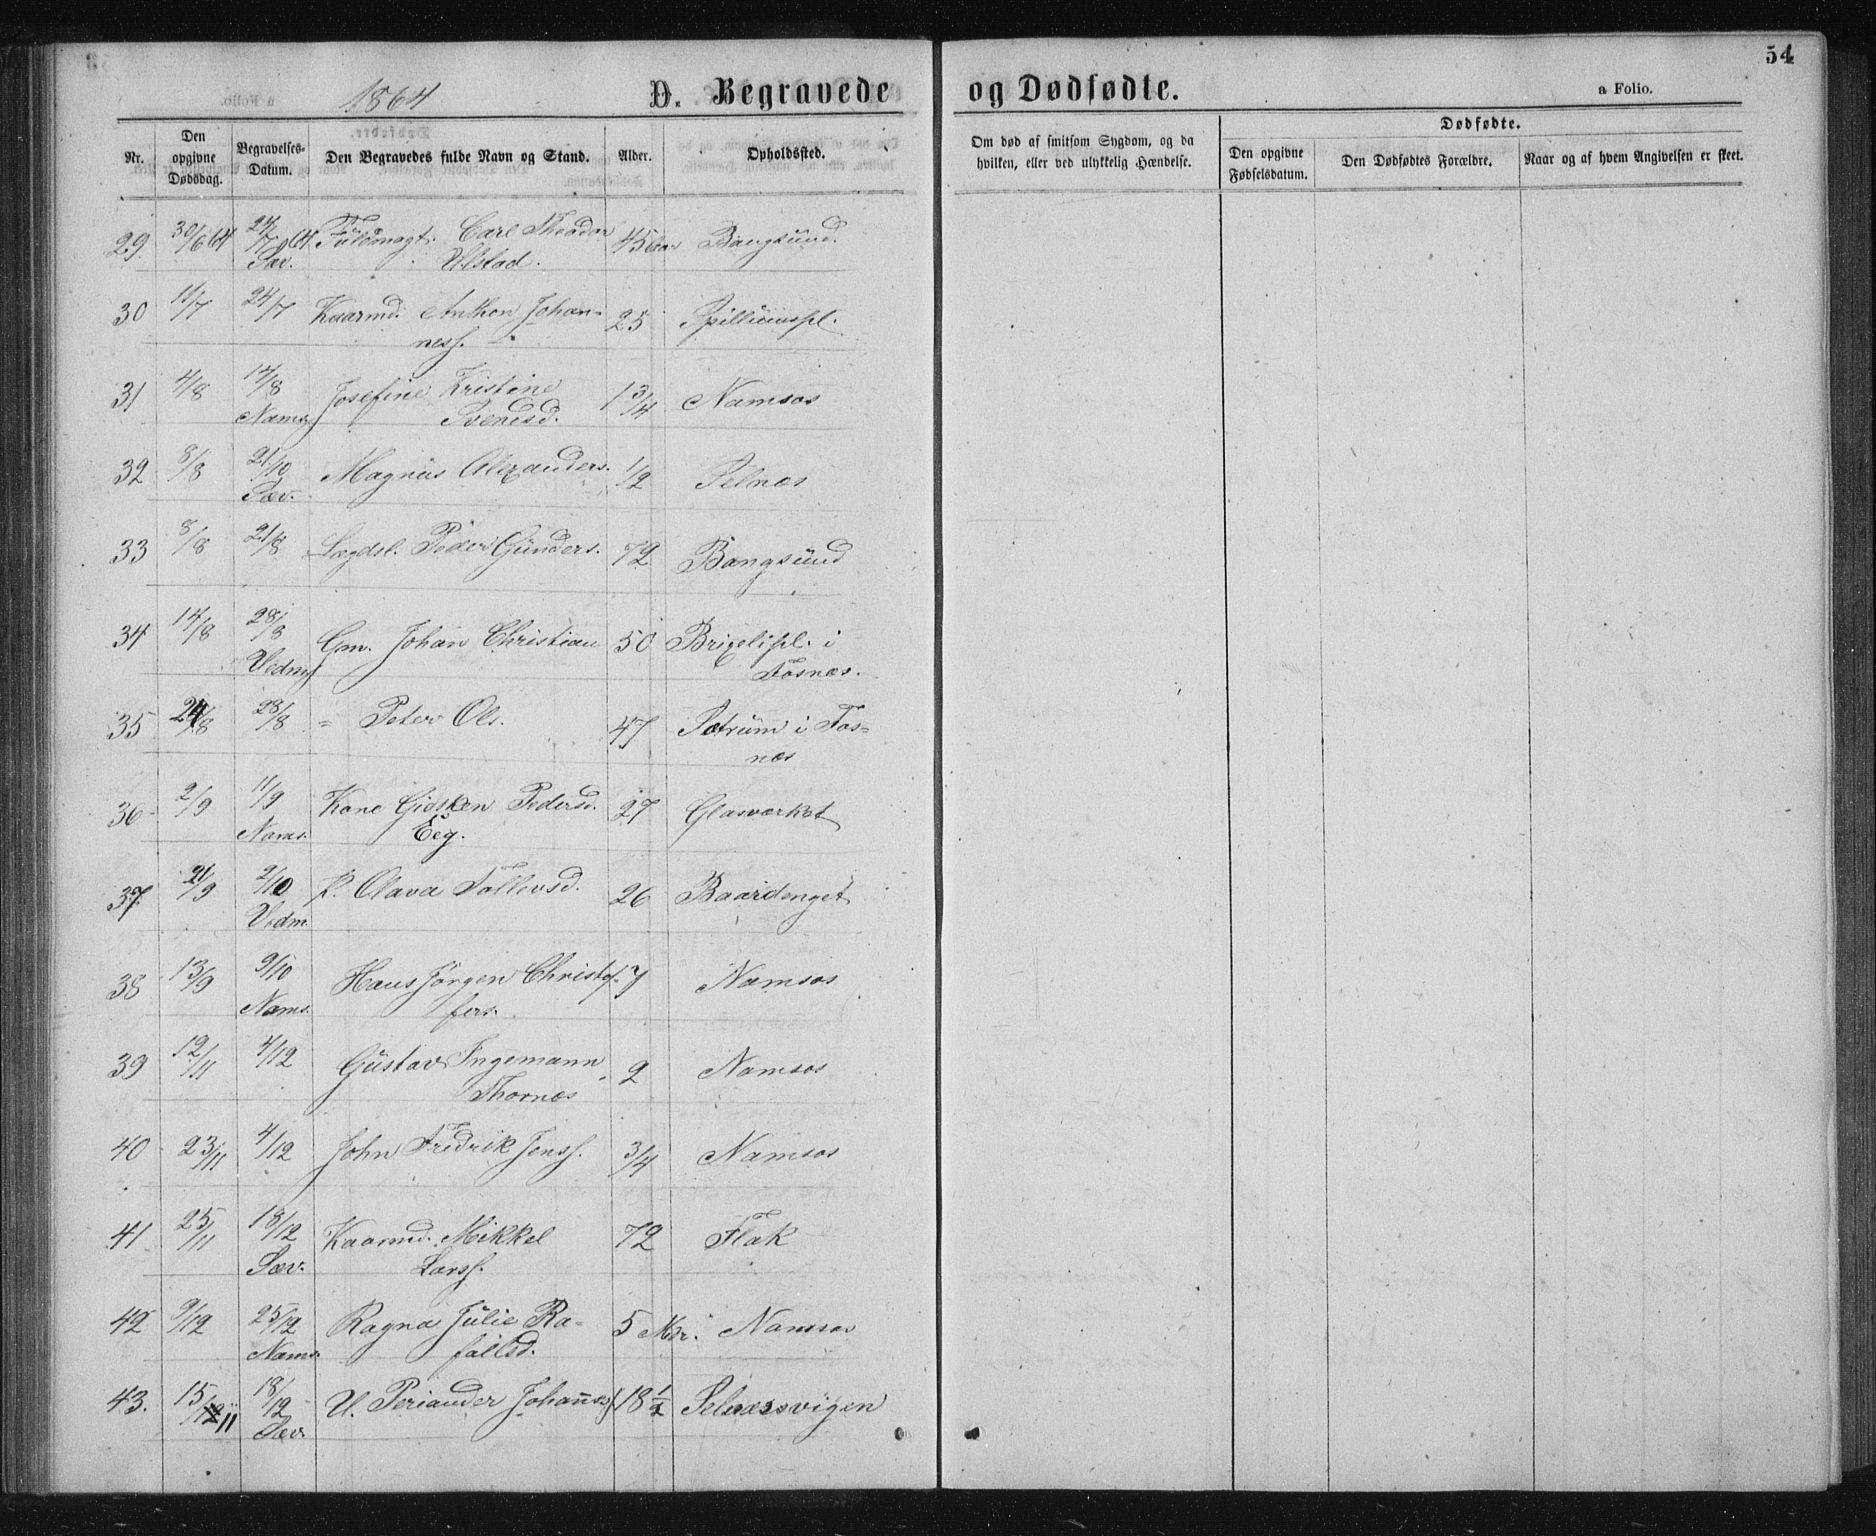 1864 D. Begravede og Dødfødte. 54
a Folio.
Nr. Den opgivne Dødsdag. Begravelses-Datum. Den Begravedes fulde Navn og Stand. Alder. Opholdssted. Om død af smitsom Sygdom, og da hvilken, eller ved ulykkelig Hændelse. Dødfødte.
Den opgivne Fødselsdatum. Den Dødfødtes Forældre. Naar og af hvem Angivelsen er skeet.
29. 30/6 64 24/7 64 Fuldmagt. Carl Theodor 45 Aar Bangsund.
Sæv. Ulstad.
30 11/7 24/7 Kaarmd. Anthon Johan- 25 Spillumspl.
nesf.
31 4/8 14/8 Josefine Kristine 1 3/4 Namsos
Nams. Svendsd.
32 8/8 21/10 Magnus Alexanders. 1/2 Selnæs
Sæv.
33 8/8 21/8 Lægdsl. Peder Gunders. 72 Bangsund
34 14/8 28/8 Gm. Johan Christian 50 Brixelipl. i
Vedm. Fosnæs.
35 24/8 28/8 " Peter Ols. 47 Sætrum i Fos-
næs
36 2/9 11/9 Kone Gidsken Pedersd. 27 Glasværket
Nams. Eeg.
37. 21/9 2/10 P. Olava Tollevsd. 26 Baardenget
Vedm.
38 13/9 9/10 Hans Jørgen Christof- 7 Namsos
Nams. fers.
39 12/11 4/12 Gustav Ingemann 2 Namsos
Thornæs
40 23/11 4/12 John Fredrik Jensf. 3/4 Namsos
41 25/11 18/12 Kaarmd. Mikkel 72 Flak
Sæv. Larsf.
42 9/12 25/12 Ragna Julie Ra- 5 Mdr. Namsos
Nams. faelsd.
43. 15/11 18/12 U. Periander Johannesf. 18 1/2 Selnæsvigen
Sæv.